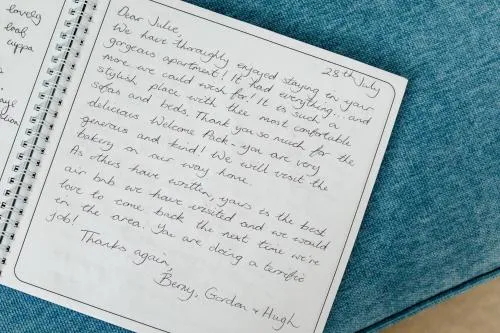 lovely
loaf
cuppa
28th July
Dear Julie,
We have thoroughly enjoyed staying in your
gorgeous apartment! It had everything... and
more we could wish for! It is such a
stylish place with the most comfortable
sofas and beds. Thank you so much for the
delicious Welcome Pack - you are very
generous and kind! We will visit the
bakery on our way home.
As others have written, yours is the best
air bnb we have visited and we would
love to come back the next time we're
in the area. You are doing a terrific
job!
Thanks again,
Berny, Gordon & Hugh